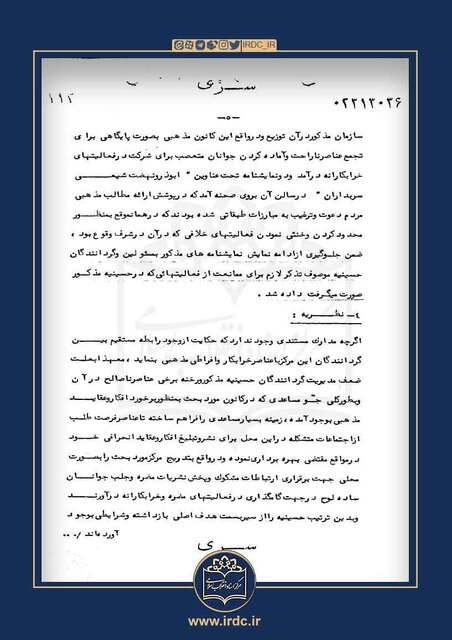 IRDC_IR
سـری
۱۱۳
۰۲۲۱۳۰۲۶
-۵-
سازمان مذکور در آن توزیع و در واقع این کانون مذهبی بصورت پایگاهی برای
تجمع عناصر ناراحت و آماده کردن جوانان متعصب برای شرکت در فعالیتهای
خرابکارانه در آمد و دو نمایشنامه تحت عناوین " ابوذر و نهضت شیعـــی
سربداران " در سالن آن بروی صحنه آمد که در پوشش ارائه مطالب مذهبی
مردم دعوت و ترغیب به مبارزات طبقاتی شده بودند که در همانموقع بمنظور
محدود کردن و خنثی نمودن فعالیتهای خلافی که در آن در شرف وقوع بود ،
ضمن جلوگیری از ادامه نمایش نمایشنامه های مذکور بمسئولین و گردانندگان
حسینیه موصوف تذکر لازم برای ممانعت از فعالیتهائی که در حسینیه مذکور
صورت میگرفت داده شد .
٤- نظـــریه :
اگرچه مدارک مستندی وجود ندارد که حکایت از وجود رابطه مستقیم بیـــن
گردانندگان این مرکز با عناصر خرابکار و افراطی مذهبی بنماید ، معهذا بعلت
ضعف مدیریت گردانندگان حسینیه مذکور و رخنه برخی عناصر ناصالح در آن
و بطور کلی جـو مساعدی که در کانون مورد بحث بمنظور برخورد افکار و عقایـد
مذهبی بوجود آمده ، زمینه بسیار مساعدی را فراهم ساخته تا عناصر فرصت طلب
از اجتماعات متشکله در این محل برای نشر و تبلیغ افکار و عقاید انحرافی خـــود
در مواقع مقتضی بهره برداری نموده و در واقع بتدریج مرکز مورد بحث را بصورت
محلی جهت برقراری ارتباطات مشکوک و پخش نشریات مضره و جلب جوانــان
ساده لوح در جهت گامگذاری در فعالیتهای مضره و خرابکارانه در آورنــــد
و بدین ترتیب حسینیه را از سیر هدف اصلی باز داشته و شرایطی بوجود
آورده اند ./۰۰۰
سـری
مرکز اسناد انقلاب اسلامی
www.irdc.ir